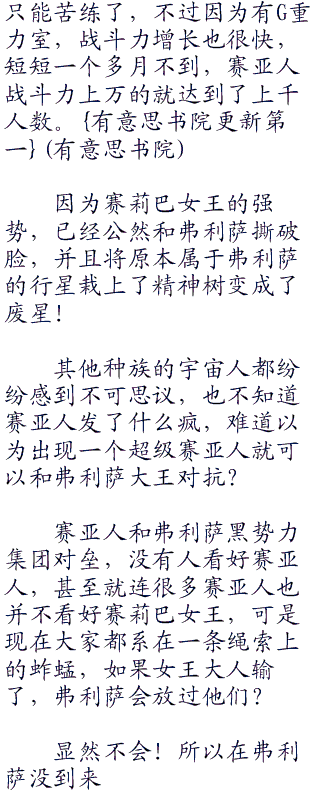 只能苦练了，不过因为有G重
力室，战斗力增长也很快，
短短一个多月不到，赛亚人
战斗力上万的就达到了上千
人数。{有意思书院更新第
一}(有意思书院)
因为赛莉巴女王的强
势，已经公然和弗利萨撕破
脸，并且将原本属于弗利萨
的行星栽上了精神树变成了
废星！
其他种族的宇宙人都纷
纷感到不可思议，也不知道
赛亚人发了什么疯，难道以
为出现一个超级赛亚人就可
以和弗利萨大王对抗？
赛亚人和弗利萨黑势力
集团对垒，没有人看好赛亚
人，甚至就连很多赛亚人也
并不看好赛莉巴女王，可是
现在大家都系在一条绳索上
的蚱蜢，如果女王大人输
了，弗利萨会放过他们？
显然不会！所以在弗利
萨没到来